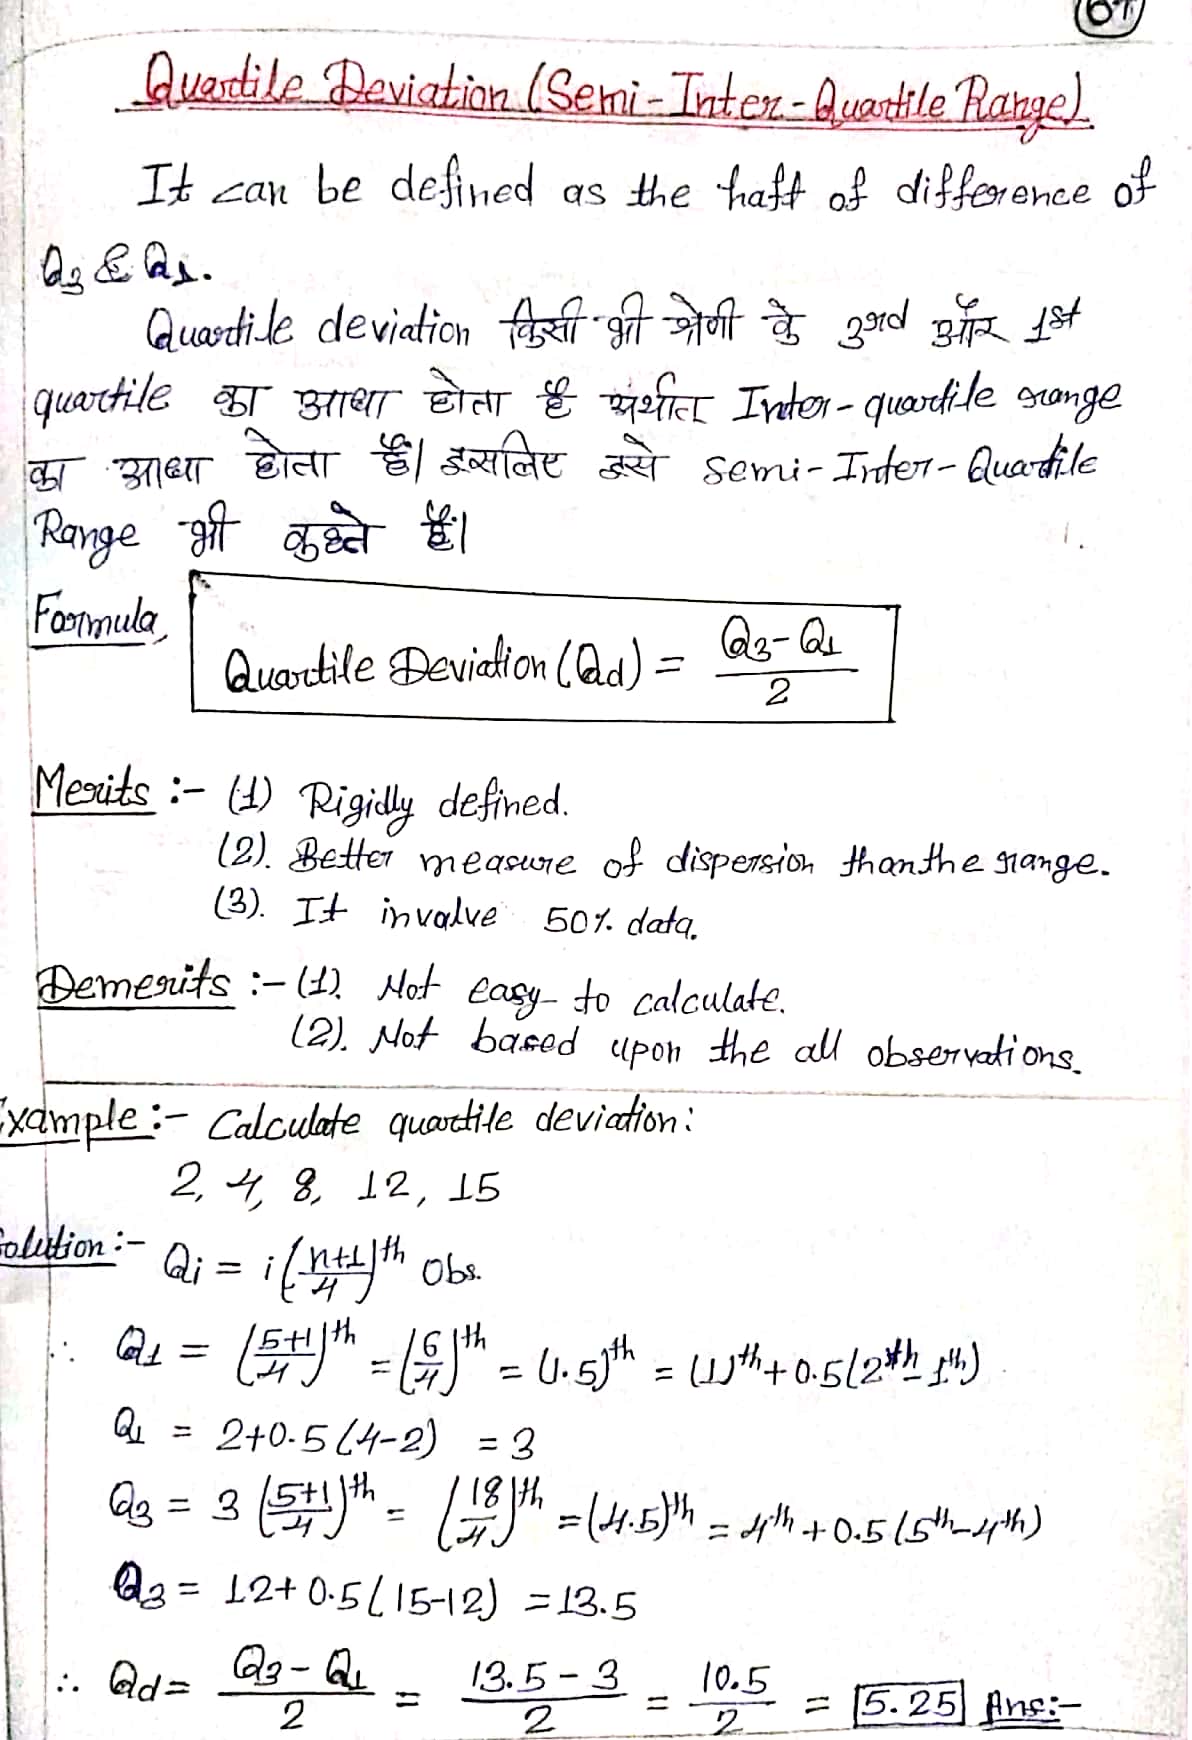 67
Quartile Deviation (Semi-Inter-Quartile Range)
It can be defined as the haft of difference of
Q₃ & Q₁.
Quartile deviation किसी भी श्रेणी के 3rd और 1st
quartile का आधा होता है अर्थात Inter-quartile range
का आधा होता है। इसलिए इसे Semi-Inter-Quartile
Range भी कहते हैं।
Formula, Quartile Deviation (Qd) = (Q₃ - Q₁)/2
Merits :- (1) Rigidly defined.
(2). Better measure of dispersion than the range.
(3). It invalve 50% data.
Demerits :- (1). Not easy to calculate.
(2). Not based upon the all observations.
Example :- Calculate quartile deviation :
2, 4, 8, 12, 15
Solution :- Qi = i((n+1)/4)th Obs.
∴ Q₁ = ((5+1)/4)th = (6/4)th = (1.5)th = (1)th + 0.5(2th - 1th)
Q₁ = 2+0.5(4-2) = 3
Q₃ = 3((5+1)/4)th = (18/4)th = (4.5)th = 4th + 0.5(5th - 4th)
Q₃ = 12+0.5(15-12) = 13.5
∴ Qd = (Q₃ - Q₁)/2 = (13.5 - 3)/2 = 10.5/2 = 5.25 Ans:-